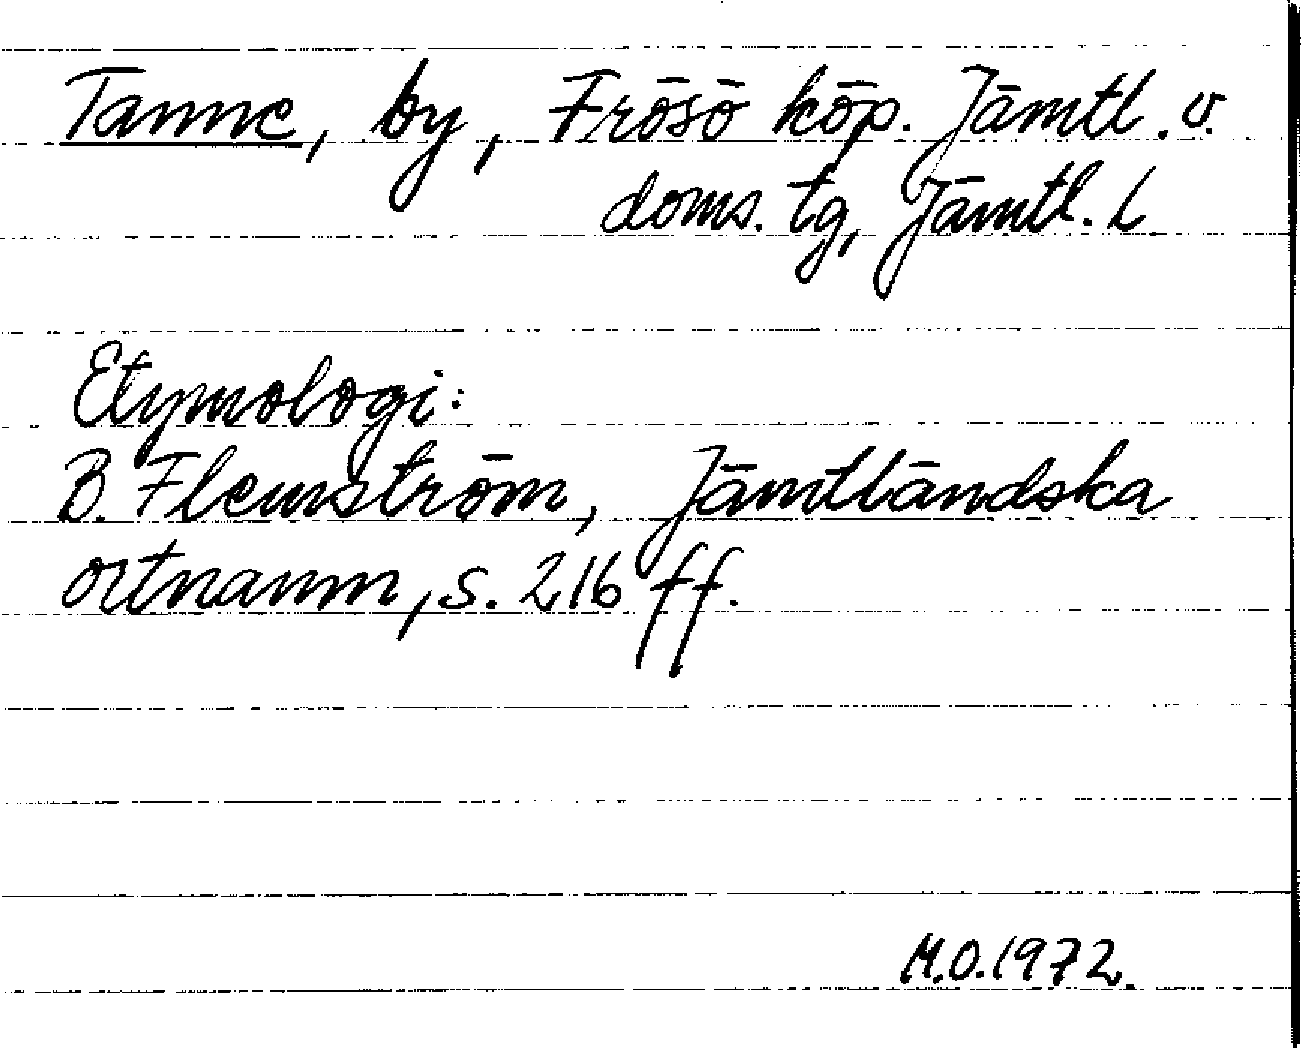 Tanne, by, Frösö köp. Jämtl. v.
doms. tg, Jämtl. l
Etymologi:
B. Flemström, Jämtländska
ortnamn, s. 216 ff.
M.O. 1972.